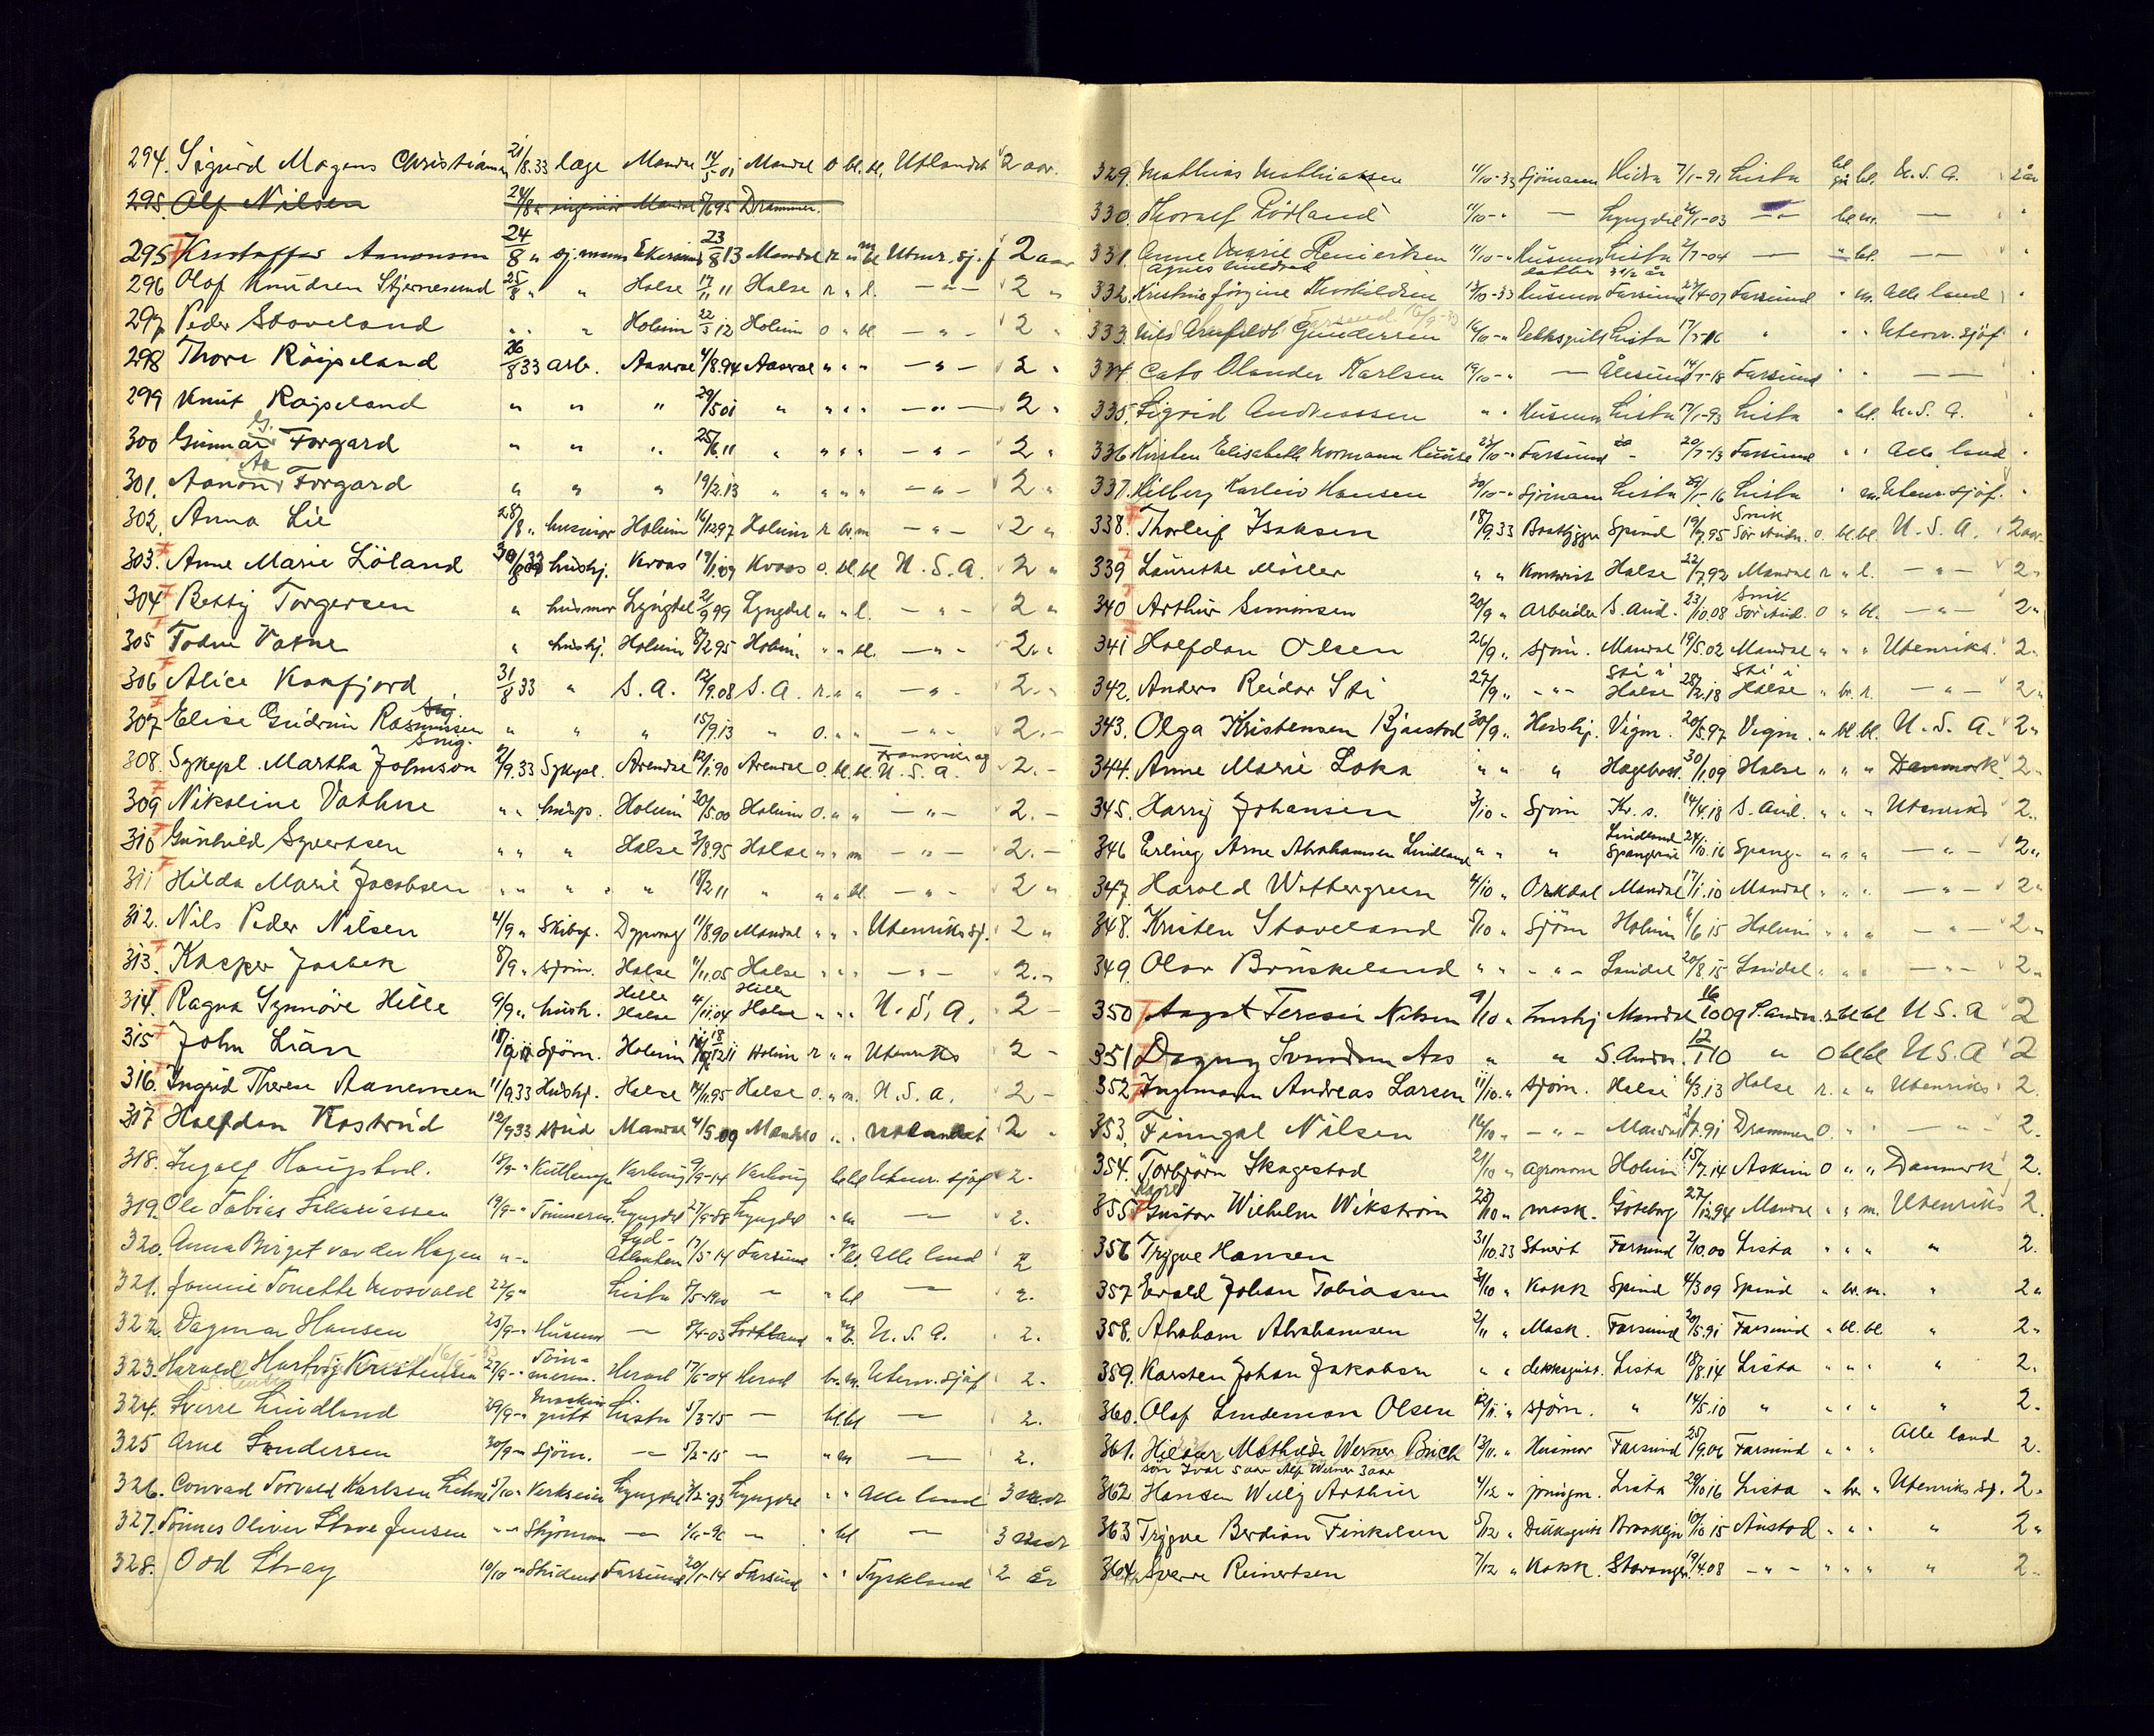 294. Sigurd Mogens Christiansen 21/8.33 læge Mandal 14/5 01 Mandal o bl. bl. Utlandet 2 aar.
295. Alf Nilsen 24/8 " ingeniør Mandal 7/6 95 Drammen.
295 Kristoffer Aanonsen 24/8 " sj.mann Ekersund 23/8 13 Mandal r " Utenr. sj.f 2 aar
296 Olaf Knudsen Stjernesund 25/8 " " Halse 17/11 11 Halse r " l. — " — 2 "
297. Peder Stoveland " " " Holum 22/5 12 Holum o " bl — " — 2 "
298 Thore Röiseland 26/8 33 arb. Aaseral 4/8.94 Aaseral " " " — " — 2 "
299 Knut Röiseland " " " 29/5 01 " " " " — " — 2 "
300 Gunnar G. Forgard " " " 25/6.11 " " " " — " — 2 "
301. Aanon Aa Forgard " " " 19/2.13 " " " " — " — 2 "
302. Anna Lie 28/8 " husmor Holum 16/12 97 Holum r br. m — " — 2 "
303. Anne Marie Löland 30/8 33 hushj. Kvaas 19/1.09 Kvaas o. bl. bl U.S.A. 2 "
304 Betty Torgersen " husmor Lyngdal 21/9 99 Lyngdal " " l. — " — 2 "
305 Todne Vatne " hushj. Holum 8/2 95 Holum " " bl. — " — 2 "
306 Alice Kanfjord 31/8 33 " S. A. 12/9.08 S. A. r. " " — " — 2. "
307 Elise Gudrun Rasmussen " " " 15/9.13 " o. " " — " — 2. -
308. Sykepl. Martha Johnson 2/9.33 Sykepl. Arendal 12/1.90 Arendal o. bl. bl. U.S.A. 2. -
309 Nikoline Vathne " " hushj. Holum 20/5.00 Holum o. " " — " — 2. -
310 Gunhild Syvertsen " " " Halse 3/8 95 Halse " " m — " — 2. -
311 Hilda Marie Jacobsen " " " " 18/2 11 " " " bl. — " — 2 "
312. Nils Peder Nilsen 4/9 " Skibsf. Dypvaag 11/8.90 Mandal " " " Utenriks sj. 2 "
313. Kasper Jaabek 8/9 " sjøm. Halse 11/11.05 Halse " " " — " — 2. -
314. Ragna Synnöve Hille 9/9 " hush. Hille Halse 4/11.04 Hille Halse " " " U.S.A. 2 -
315 John Lian Sjøm. Holum Holum r " " Utenriks 2 -
316. Ingrid Therese Aanensen 11/9.33 Hushj. Halse 14/11.95 Halse o. " m. U.S.A. 2 -
317 Halfdan Kostrud 12/9 33 stud Mandal 4/5.09 Mandal o " " utlandet 2 "
318. Ingolf Haugstad. 18/9 - " Varhaug 9/9-14 Varhaug bl bl Utenr. sjøf 2.
319. Ole Tobias Salvesen 19/9 - " Tömmerm. Lyngdal 27/9-88 Lyngdal " m — 2.
320. Anna Birget van der Hagen " - " Syd-Atlanten 17/5-14 Farsund " Alle land 2
321. Jannie Tonette Mosvold 22/9 " Lista 8/5-1900 — " bl — 2.
322. Dagmar Hansen 25/9 - " Husmor — 8/4-03 Sortland " U.S.A. 2.
323. Harald Hartvig Kristensen 27/9 - " Tömmerm. Herad 17/6-04 Herad br. m. Utenr. sjøf 2.
324. Sverre Lindland 29/9 - " Maskingutt Lista 5/3-15 — bl bl — 2.
325 Arne Sundersen 30/9 - " sjöm. — 5/2-15 — " m — 2.
326. Conrad Torvald Karlsen Lohne 5/10 - " Verkseier Lyngdal 3/2-93 Lyngdal " " Alle land 3 mdr
327. Tönnes Oliver Stave Jensen " - " — — " bl — 3 mdr
328. Odd Stray 10/10 - " Student Farsund 20/1-14 Farsund " " Tyskland 2 år
329. Mathias Mathiassen 11/10-33 Sjömann Hidra 7/1-91 Lista bl. bl. U.S.A. 2 år
330. Thoralf Rödland 11/10 - " — Lyngdal 26/1-03 — " — bl m. — "
331. Anne Marie Reniertsen 11/10 - " Husmor Lista 2/7-04 — bl. — — "
Agnes datter 3 1/2 år
332. Kristine Jörgine Thorkildsen 13/10-33 husmor Farsund 27/4-07 Farsund " m. Alle land "
333. Nils Arnfeldt Gundersen 16/10 - " Dekksgutt Lista 17/5-16 " " " Utenr. sjøf. "
334. Cato Olander Karlsen 19/10 - " — Ålesund 14/5-18 Farsund " " — — "
335. Sigrid Andreassen " " Husmor Lista 17/1-93 Lista " bl. U.S.A. "
336 Kirsten Elisabeth Normann Huuse 23/10 - " Farsund 20/7-13 Farsund " " Alle land "
337. Hilberg Karluis Hansen 30/10 - " Sjömann Lista 29/1-16 Lista " m. Utenr. sjøf. "
338. Thorleif Isaksen 18/9.33 Baatbygger Spind 19/7.95 Snik Sør Audn. o. bl. bl. U.S.A. 2 aar.
339 Laurette Möller " " Kontorist Halse 22/7.92 Mandal r " l. — " — 2 "
340 Arthur Simonsen 20/9 " Arbeider S. Aud. 23/10.08 Snik Sør Aud. o " bl. — " — 2 "
341 Halfdan Olsen 26/9 " sjøm. Mandal 19/5.02 Mandal " " " Utenriks. 2.
342. Anders Reidar Sti 27/9 " — " — Sti i Halse 28/2.18 Sti i Halse " br. r. — " — 2 "
343. Olga Kristensen Bjaestad 30/9 " Hushj. Vigm. 20/5.97 Vigm. " bl bl. U.S.A. 2 "
344. Anne Marie Loka " " " Hægebost. 30/1.09 Halse " " " Danmark 2 "
345. Harry Johansen 3/10 " Sjøm Kr. s. 14/4.18 S. Aud. " " " Utenriks 2.
346 Erling Arne Abrahamsen Lindland " " " Lindland Spangereid 24/10.16 Spang- " " " — " — 2 "
347. Harald Wettergreen 4/10 " Mandal 17/1.10 Mandal " " " — " — 2 "
348. Kristen Stoveland 5/10 " Sjøm Holum 6/6 15 Holum " " " — " — 2 "
349. Olav Bruskeland " " — " — Laudal 20/8.15 Laudal " " " — " — 2 "
350 Aagot Teresie Nilsen 9/10 " hushj Mandal 16/10 09 S. audn. r bl bl U.S.A 2
351 Dagny Svendsen Aas " " S. Audn. 12/1 10 " O bl bl U.S.A 2
352 Ingemann Andreas Larsen 11/10. " sjøm. Halse 6/3.13 Halse r. " " Utenriks 2.
353. Finngal Nilsen 16/10 " — " — Mandal 3/7.91 Drammen o. " " — " — 2.
354. Torbjørn Skagestad 21/10 " agronom Holum 15/7.14 Askim o " " Danmark 2.
355 Gustav Wilhelm Wikström 23/10 " mask. Göteborg 27/12.94 Mandal " " m. Utenriks 2.
356 Trygve Hansen 31/10.33 Stuert Farsund 2/10.00 Lista " " " " 2.
357 Evald Johan Tobiassen 31/10 " Kokk Spind 4/3 09 Spind " br. m. " 2 "
358. Abraham Abrahamsen 2/11 " Mask. Farsund 20/5.91 Farsund " bl. bl " 2 "
359. Karsten Johan Jakobsen " " dekksgutt. Lista 18/8.14 Lista " " " " 2.
360. Olaf Lindeman Olsen 12/11. " sjøm. " 14/5.10 " " " " " 2.
361. Hilmar Mathilde Werner Brick 13/11. " Husmor Farsund 25/9.06 Farsund " " " Alle land 2.
søn Ivar 5 aar Alf Werner 3 aar
362. Hansen Willy Arthur 4/12 " jungm. Lista 29/10 16 Lista " br. " Utenriks sj. 2.
363 Trygve Berdian Finkelsen 5/12 " Dekksgutt Brooklyn 10/10 15 Austad " " " " 2 "
364. Sverre Reinertsen 7/12 " Kokk. Stavanger 19/4.08 — " — " " " " 2.